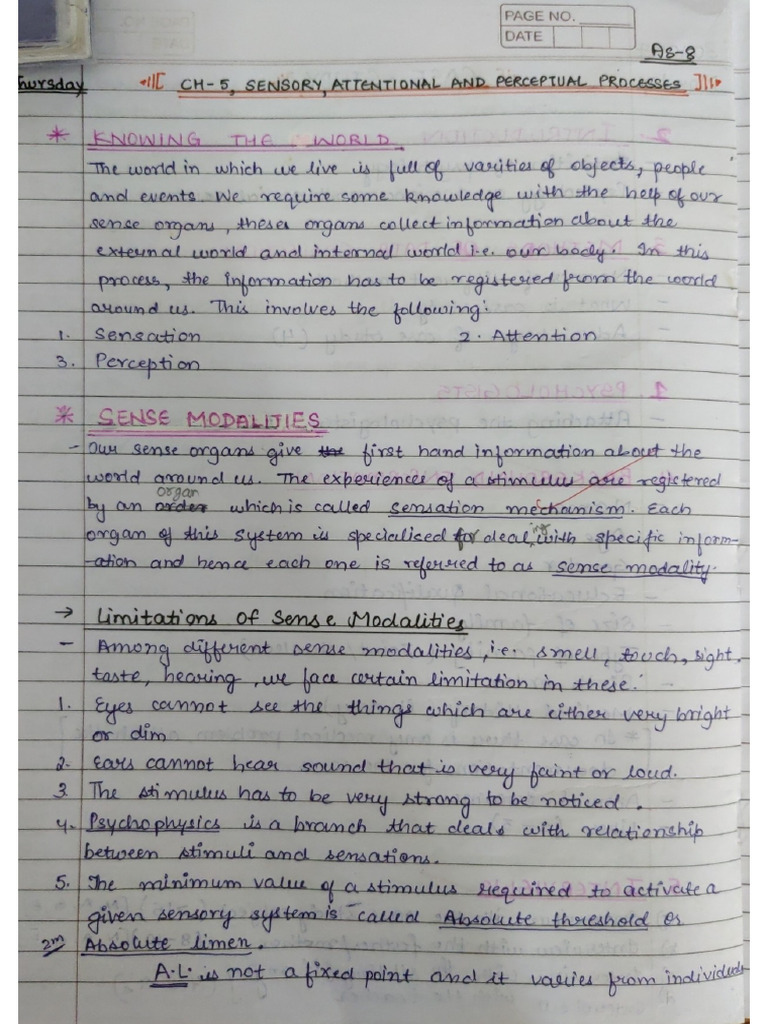 PAGE NO.
DATE
As-8
Thursday CH-5, SENSORY, ATTENTIONAL AND PERCEPTUAL PROCESSES
* KNOWING THE WORLD
The world in which we live is full of varities of objects, people
and events. We require some knowledge with the help of our
sense organs, these organs collect information about the
external world and internal world i.e. our body. In this
process, the information has to be registered from the world
around us. This involves the following:
1. Sensation 2. Attention
3. Perception
* SENSE MODALITIES
- Our sense organs give the first hand information about the
world around us. The experiences of a stimulus are registered
organ
by an order which is called sensation mechanism. Each
organ of this system is specialised for dealing with specific inform-
-ation and hence each one is referred to as sense modality.
→ Limitations of Sense Modalities
- Among different sense modalities, i.e. smell, touch, sight,
taste, hearing, we face certain limitation in these.
1. Eyes cannot see the things which are either very bright
or dim
2. Ears cannot hear sound that is very faint or loud.
3. The stimulus has to be very strong to be noticed.
4. Psychophysics is a branch that deals with relationship
between stimuli and sensations.
5. The minimum value of a stimulus required to activate a
given sensory system is called Absolute threshold or
2m Absolute limen.
A.L. is not a fixed point and it varies from individuals